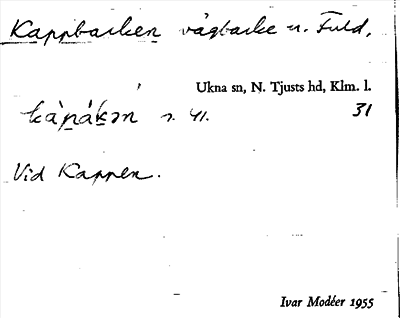 Kappbacken vägbacke u. Fuld.
Ukna sn, N. Tjusts hd, Klm. l.
s. 41. 31
Vid Kappen.
Ivar Modéer 1955